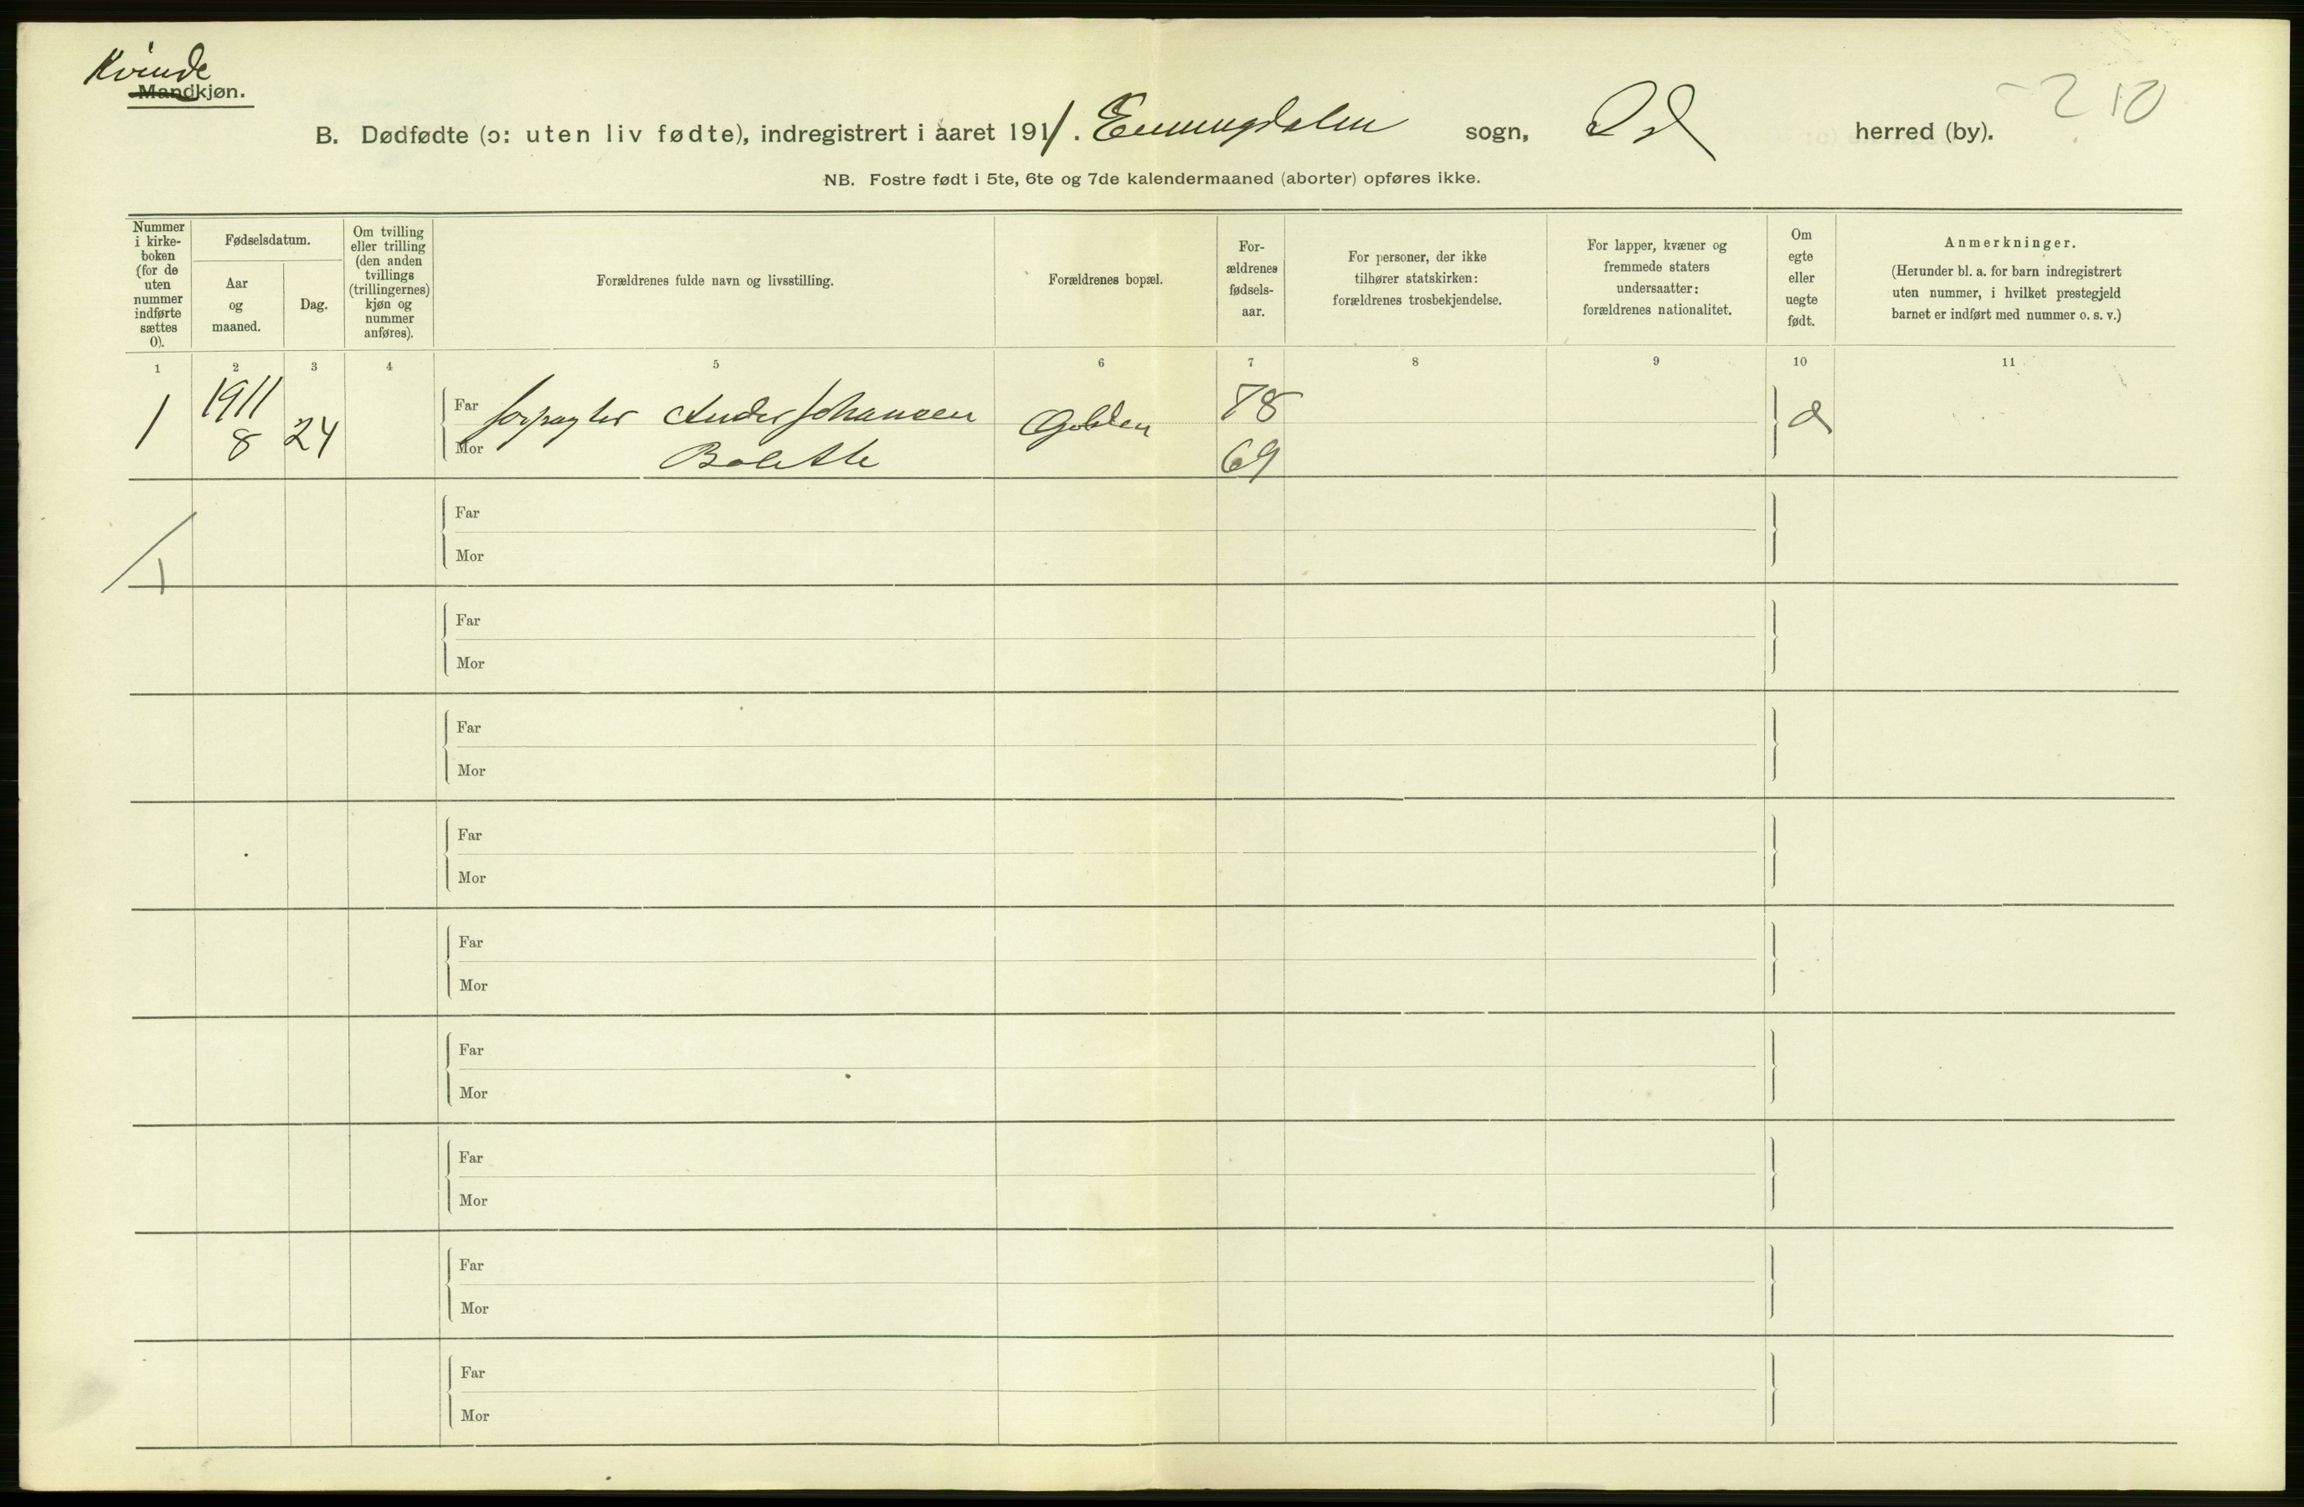 Kvinde
Mandkjøn.
210
B. Dødfødte (ɔ: uten liv fødte), indregistrert i aaret 1911. Enningdalen sogn, Id herred (by).
NB. Fostre født i 5te, 6te og 7de kalendermaaned (aborter) opføres ikke.
Nummer
i kirke-
boken
(for de
uten
nummer
indførte
sættes
0).
Fødselsdatum.
Aar
og
maaned.
Dag.
Om tvilling
eller trilling
(den anden
tvillings
(trillingernes)
kjøn og
nummer
anføres).
Forældrenes fulde navn og livsstilling.
Forældrenes bopæl.
For-
ældrenes
fødsels-
aar.
For personer, der ikke
tilhører statskirken:
forældrenes trosbekjendelse.
For lapper, kvæner og
fremmede staters
undersaatter:
forældrenes nationalitet.
Om
egte
eller
uegte
født.
Anmerkninger.
(Herunder bl. a. for barn indregistrert
uten nummer, i hvilket prestegjeld
barnet er indført med nummer o. s. v.)
1 2 3 4 5 6 7 8 9 10 11
1 1911 8 24 Far forpagter Anders Johansen 78
Mor Bolette 69
1
Far
Mor
Far
Mor
Far
Mor
Far
Mor
Far
Mor
Far
Mor
Far
Mor
Far
Mor
Far
Mor